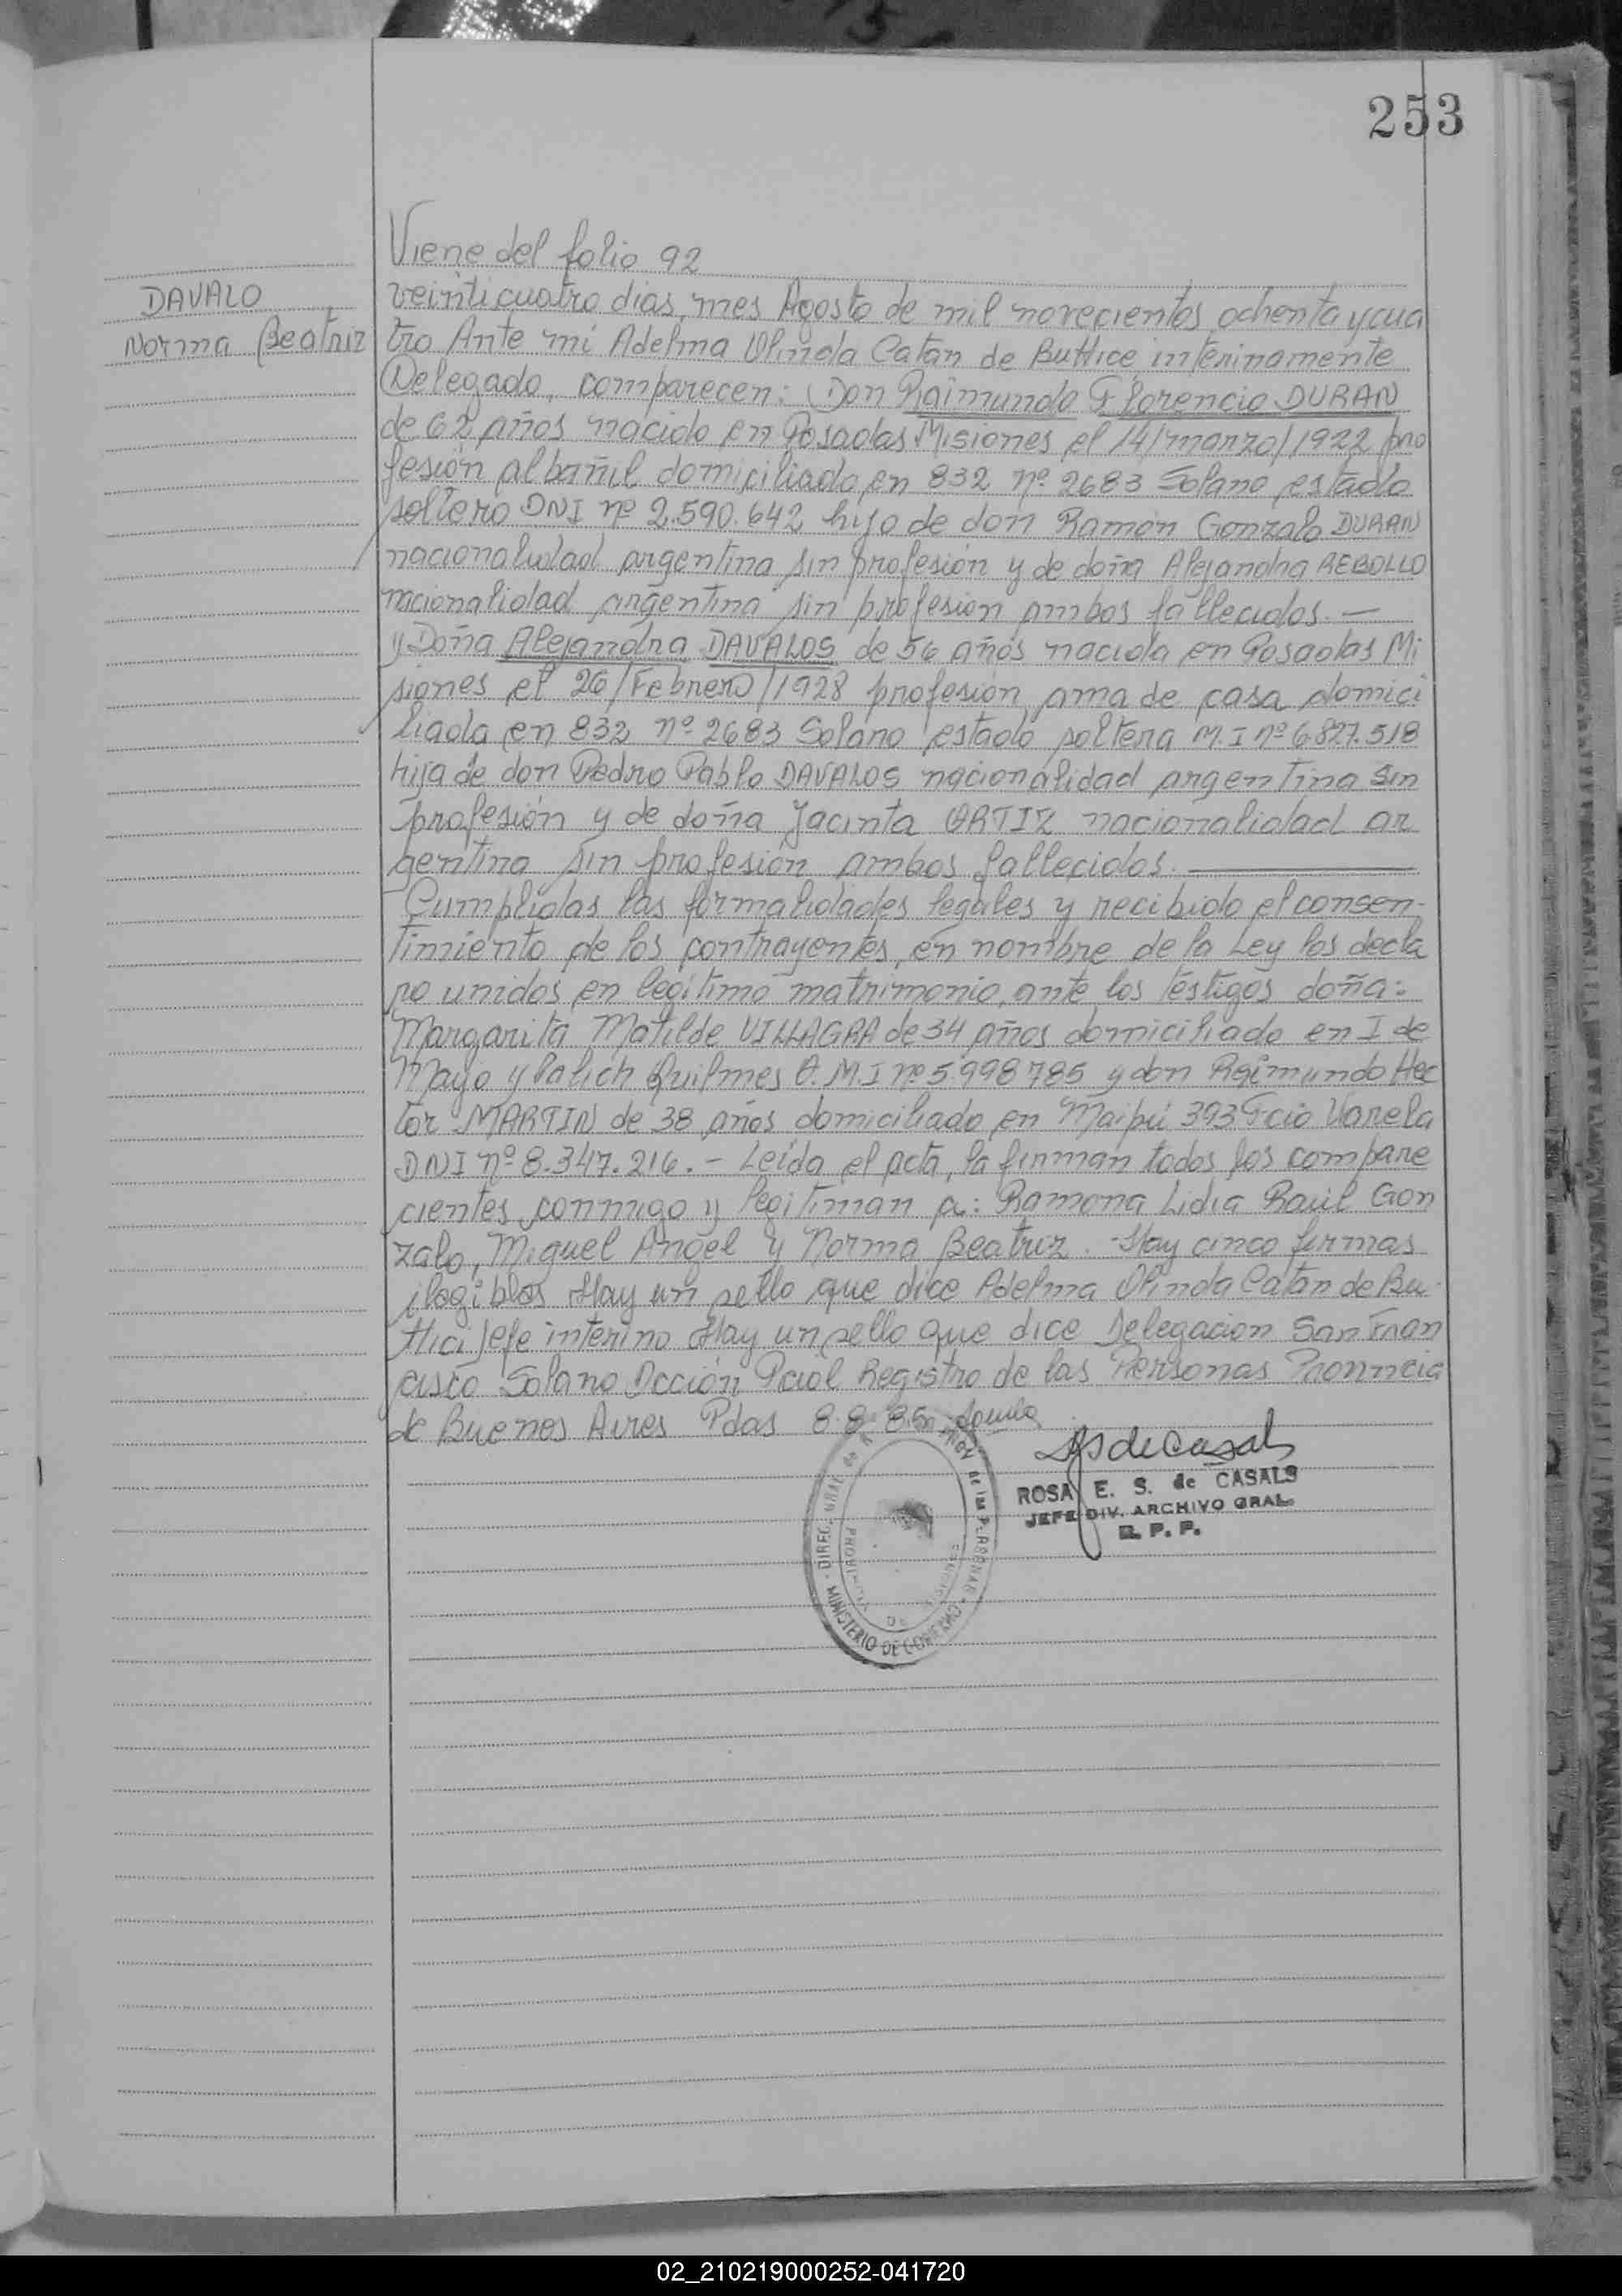 253
Viene del folio 92
DAVALO
Norma Beatriz
veinticuatro dias, mes Agosto de mil novecientos ochenta y cua
tro Ante mi Adelma Olinda Catan de Buttice interinamente
Delegado, comparecen: Don Raimundo Florencio DURAN
de 62 años nacido en Posadas Misiones el 14/marzo/1922 pro
fesión albañil domiciliado en 832 nº 2683 Solano estado
soltero DNI nº 2.590.642 hijo de don Ramón Gonzalo DURAN
nacionalidad argentina sin profesión y de doña Alejandra REBOLLO
nacionalidad argentina sin profesion ambos fallecidos.—
y Doña Alejandra DAVALOS de 56 años nacida en Posadas Mi
siones el 26/Febrero/1928 profesión ama de casa domici
liada en 832 nº 2683 Solano estado soltera M.I nº 6.827.518
hija de don Pedro Pablo DAVALOS nacionalidad argentina sin
profesión y de doña Jacinta ORTIZ nacionalidad ar
gentina sin profesión ambos fallecidos.
Cumplidas las formalidades legales y recibido el consen-
timiento de los contrayentes, en nombre de la Ley los decla
ro unidos en legitimo matrimonio, ante los testigos doña:
Margarita Matilde VILLAGRA de 34 años domiciliado en I de
Mayo y Quilmes M.I nº 5.998785 y don Raimundo Hec
tor MARTIN de 38 años domiciliado en Maipú 393 Fcio Varela
DNI nº 8.347.216.- Leida el acta, la firman todos los compare
cientes conmigo y legitiman a: Ramona Lidia Raúl Gon
zalo, Miguel Angel y Norma Beatriz. Hay cinco firmas
ilegibles Hay un sello que dice Adelma Olinda Catan de Bu
ttici Jefe interino Hay un sello que dice Delegacion San Fran
cisco Solano Dcción Pcial Registro de las Personas Provincia
de Buenos Aires Pdas 8.8.85
ROSA E. S. de CASALS
JEFE DIV. ARCHIVO GRAL.
R. P. P.
DIREC. GRAL de las PERSONAS
MINISTERIO DE GOBIERNO
PROVINCIA DE MISIONES
02_210219000252-041720